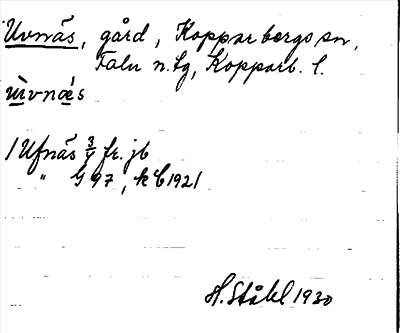 Uvnäs, gård, Kopparbergs sn,
Falu n. tg, Kopparb. l.
ùvnæ̀s
1 Ufnäs 3/4 fr. jb
" G 97, kb 1921
H. Ståhl 1930